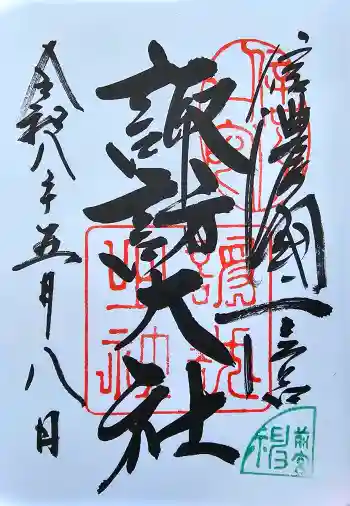 信濃國一之宮
諏訪大社
令和八年五月八日
諏訪
明神
前宮